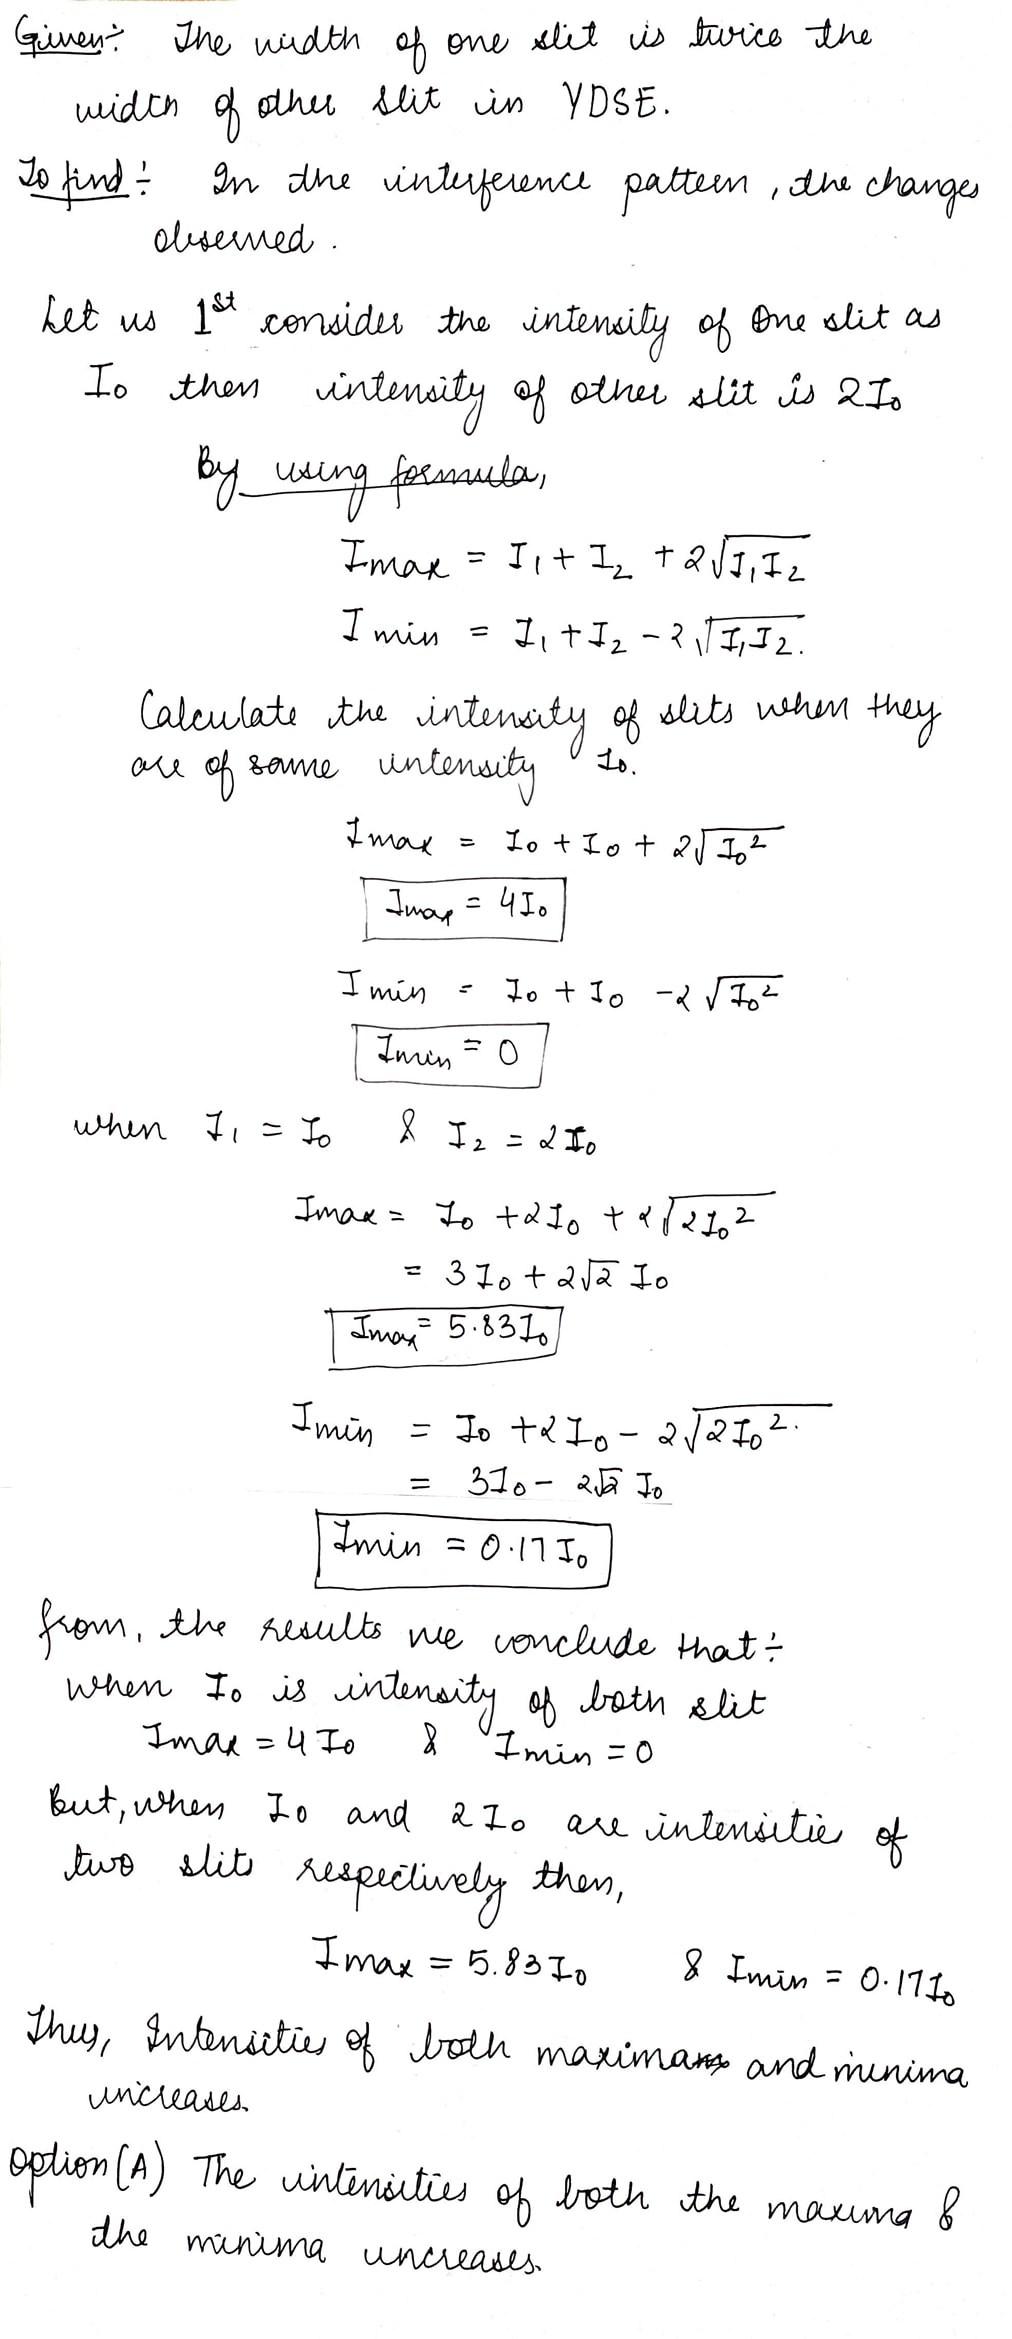 Given÷ The width of one slit is twice the
width of other slit in YDSE.
To find÷ In the interference pattern, the changes
observed.
Let us 1st consider the intensity of One slit as
I₀ then intensity of other slit is 2I₀
By using formula,
Imax = I₁ + I₂ + 2√I₁I₂
Imin = I₁ + I₂ - 2√I₁I₂.
Calculate the intensity of slits when they
are of same intensity I₀.
Imax = I₀ + I₀ + 2√I₀²
Imax = 4I₀
Imin = I₀ + I₀ - 2√I₀²
Imin = 0
when I₁ = I₀ & I₂ = 2I₀
Imax = I₀ + 2I₀ + 2√2I₀²
= 3I₀ + 2√2 I₀
Imax = 5.83I₀
Imin = I₀ + 2I₀ - 2√2I₀².
= 3I₀ - 2√2 I₀
Imin = 0.17 I₀
from, the results we conclude that÷
when I₀ is intensity of both slit
Imax = 4I₀ & Imin = 0
But, when I₀ and 2I₀ are intensitie of
two slits respectively then,
Imax = 5.83I₀ & Imin = 0.17I₀
Thus, Intensities of both maxima and minima
increases.
Option (A) The intensities of both the maxima &
the minima increases.